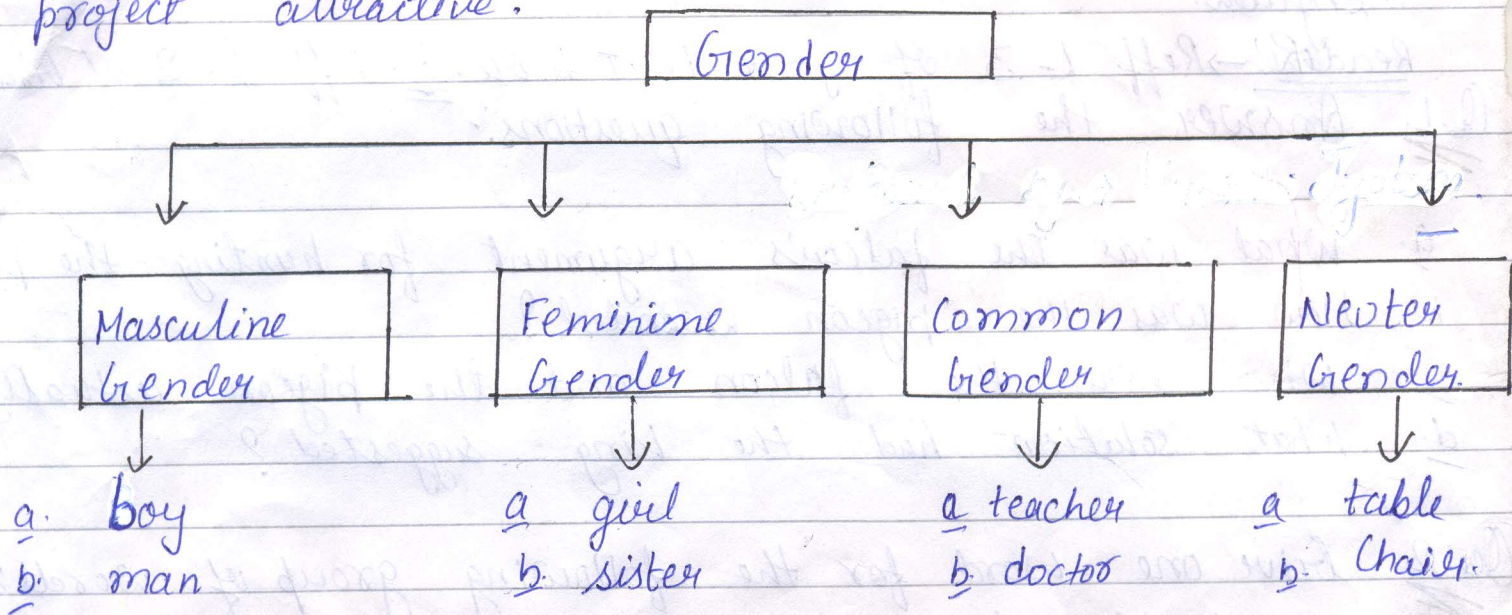 project attractive.
Gender
Masculine Gender
Feminine Gender
Common Gender
Neuter Gender.
a. boy
b. man
a girl
b. sister
a teacher
b. doctor
a table
b. Chair.